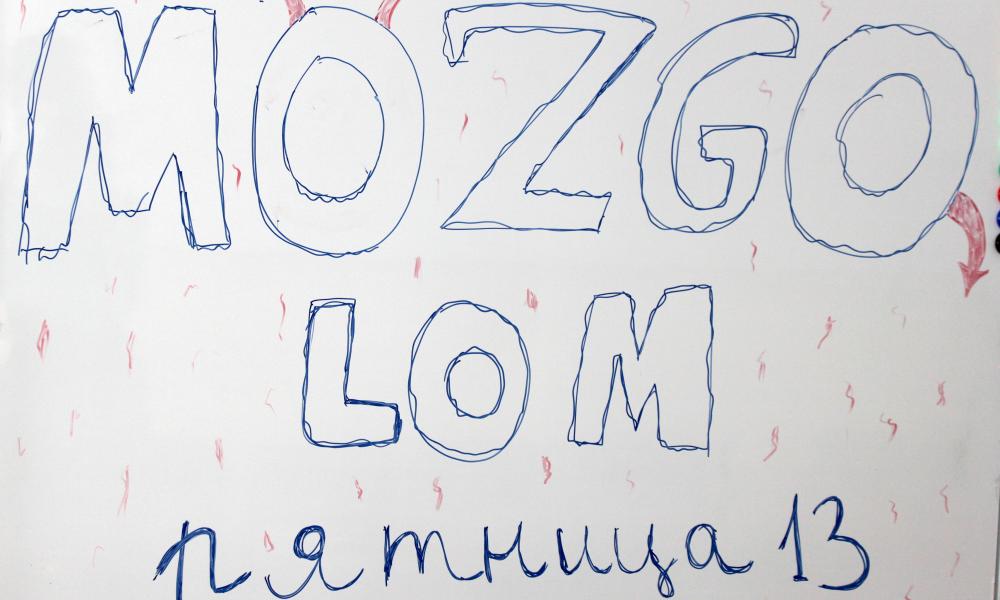 MOZGO
LOM
пятница 13